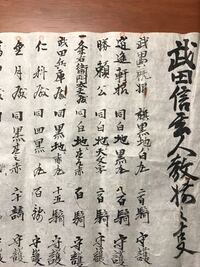 武田信玄人数之
武田 旗黒地白丸 二百騎 守護
逍遥軒 同白地黒丸 八百騎 守護
勝頼公 同白地大文字 二百騎 守護
一条右衛門大夫殿 同白地 二百騎 守護
武田兵庫殿 同黒地赤丸 十五騎 守護
仁科殿 同四黒 百騎 守護
望月殿 同黒地 六十騎 守護